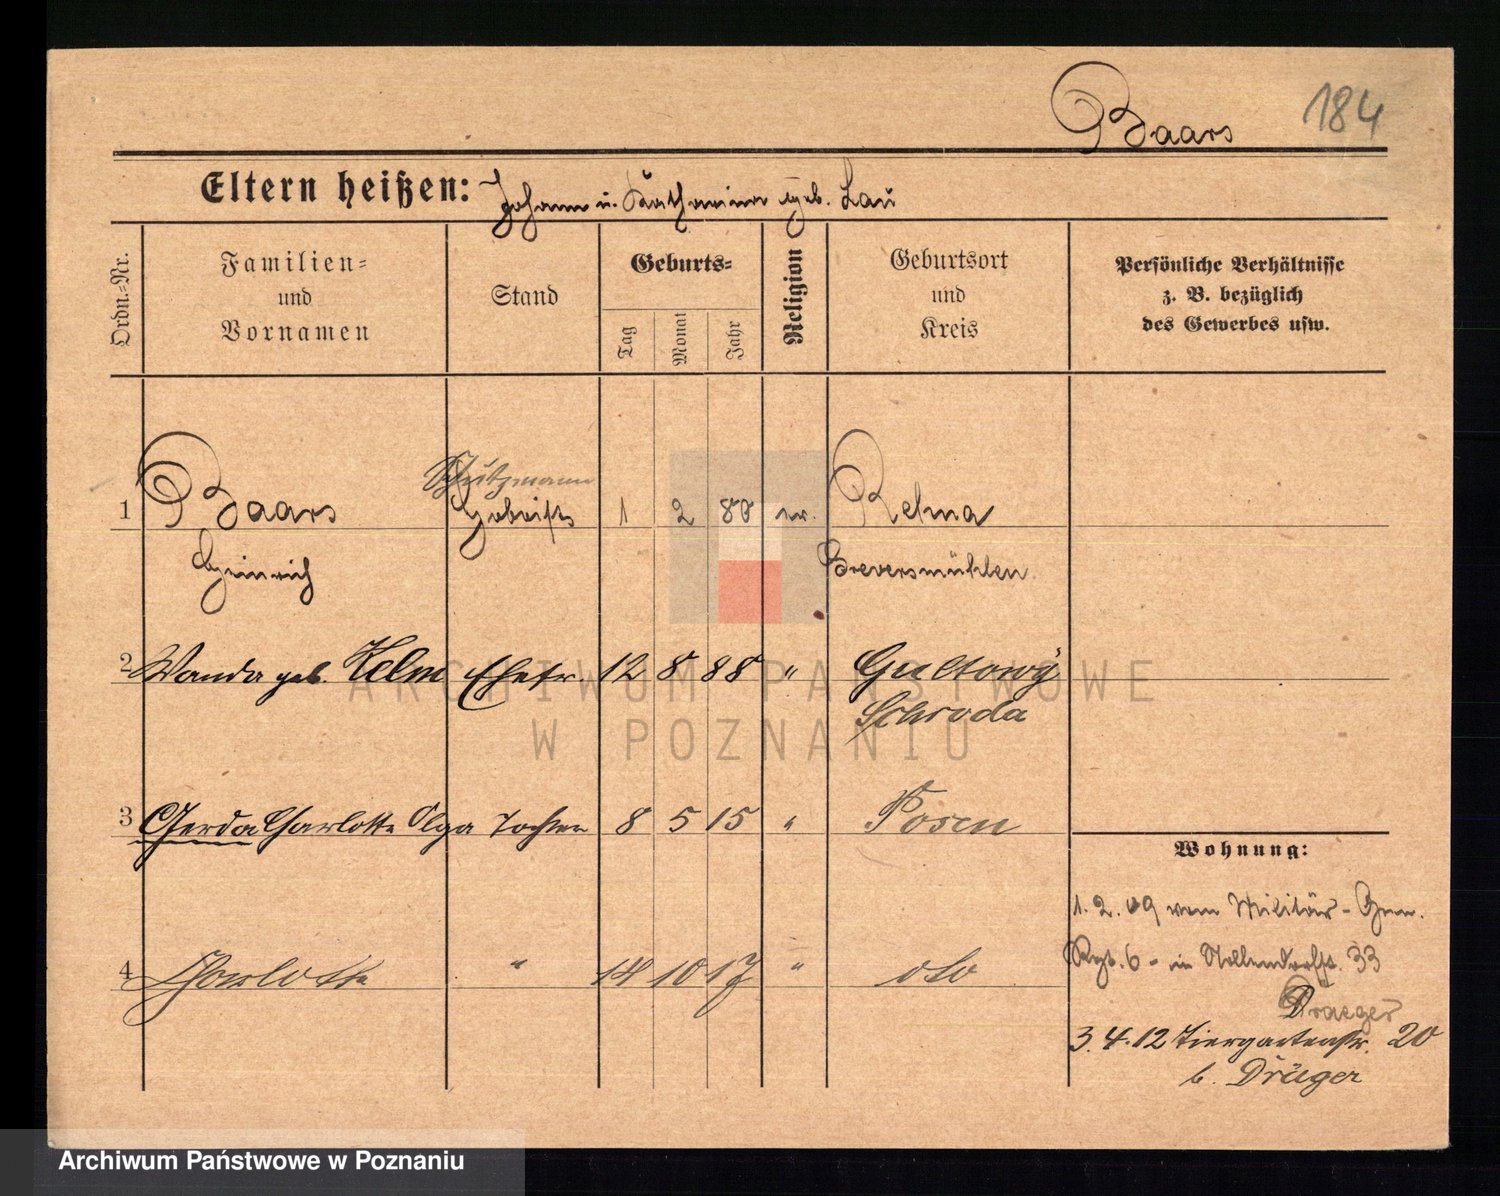 Baars 184
Eltern heißen: Johann u. Katharina geb. Lau
Ordn.-Nr.
Familien-
und
Vornamen
Stand
Geburts-
Tag
Monat
Jahr
Religion
Geburtsort
und
Kreis
Persönliche Verhältnisse
z. B. bezüglich
des Gewerbes usw.
Schutzmann
1 Baars 1 2 80 ev. Relna
Heinrich Greversmühlen
2 Wanda geb. Helm Ehefr. 12 8 88 " Gultowy
Schroda
3 Gerda Charlotte Olga Tochter 8 5 15 " Posen
4 Charlotte " 14 10 17 " dto
Wohnung:
1. 2. 09 vom Militär-Gren.
Regt. 6 - in Nollendorfstr. 33
Draeger
3. 4. 12 Tiergartenstr. 20
b. Dräger
ARCHIWUM PAŃSTWOWE
W POZNANIU
Archiwum Państwowe w Poznaniu